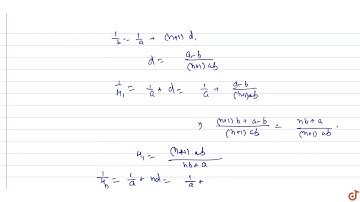 1/b = 1/a + (n+1) d,
d = a-b / (n+1) ab
1/H₁ = 1/a + d = 1/a + a-b / (n+1)ab
⇒ (n+1) b + a-b / (n+1) ab = nb + a / (n+1) ab
H₁ = (n+1) ab / nb + a
1/Hₙ = 1/a + nd = 1/a +